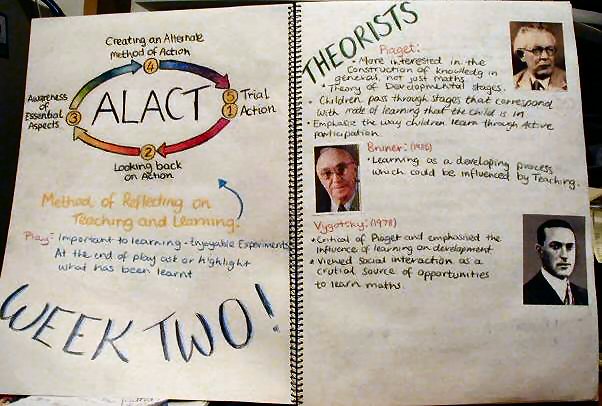 Creating an Alternate
Method of Action
4
Awareness
of
Essential
Aspects
3
ALACT
5
1
Trial
Action
2
Looking back
on Action
Method of Reflecting on
Teaching and Learning.
Play - Important to learning - Enjoyable Experiments
At the end of play ask or highlight
what has been learnt
WEEK TWO!
THEORISTS
Piaget:
• More interested in the
Construction of knowledg in
general, not just maths.
• Theory of Developmental stages.
• Children pass through stages that correspond
with rate of learning that the child is in
• Emphasis the way children learn through Active
participation.
Bruner: (1986)
• Learning as a developing process
which could be influenced by Teaching.
Vygotsky: (1978)
• Critical of Piaget and emphasised the
influence of learning on development.
• Viewed social interaction as a
crutial source of opportunities
to learn maths.